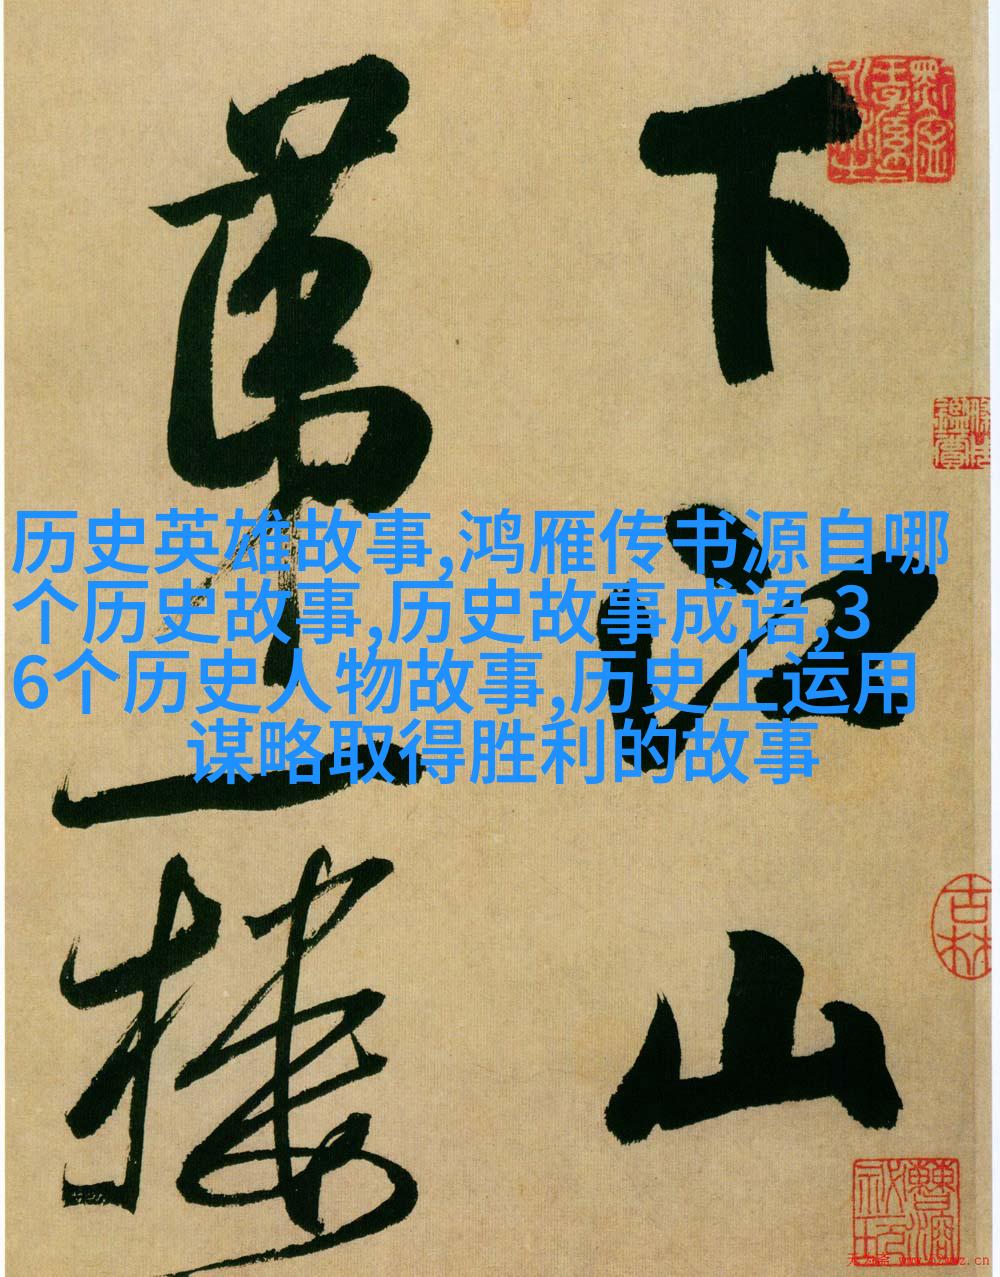 下江山
第一樓
历史英雄故事,鸿雁传书源自哪
个历史故事,历史故事成语,3
6个历史人物故事,历史上运用
谋略取得胜利的故事